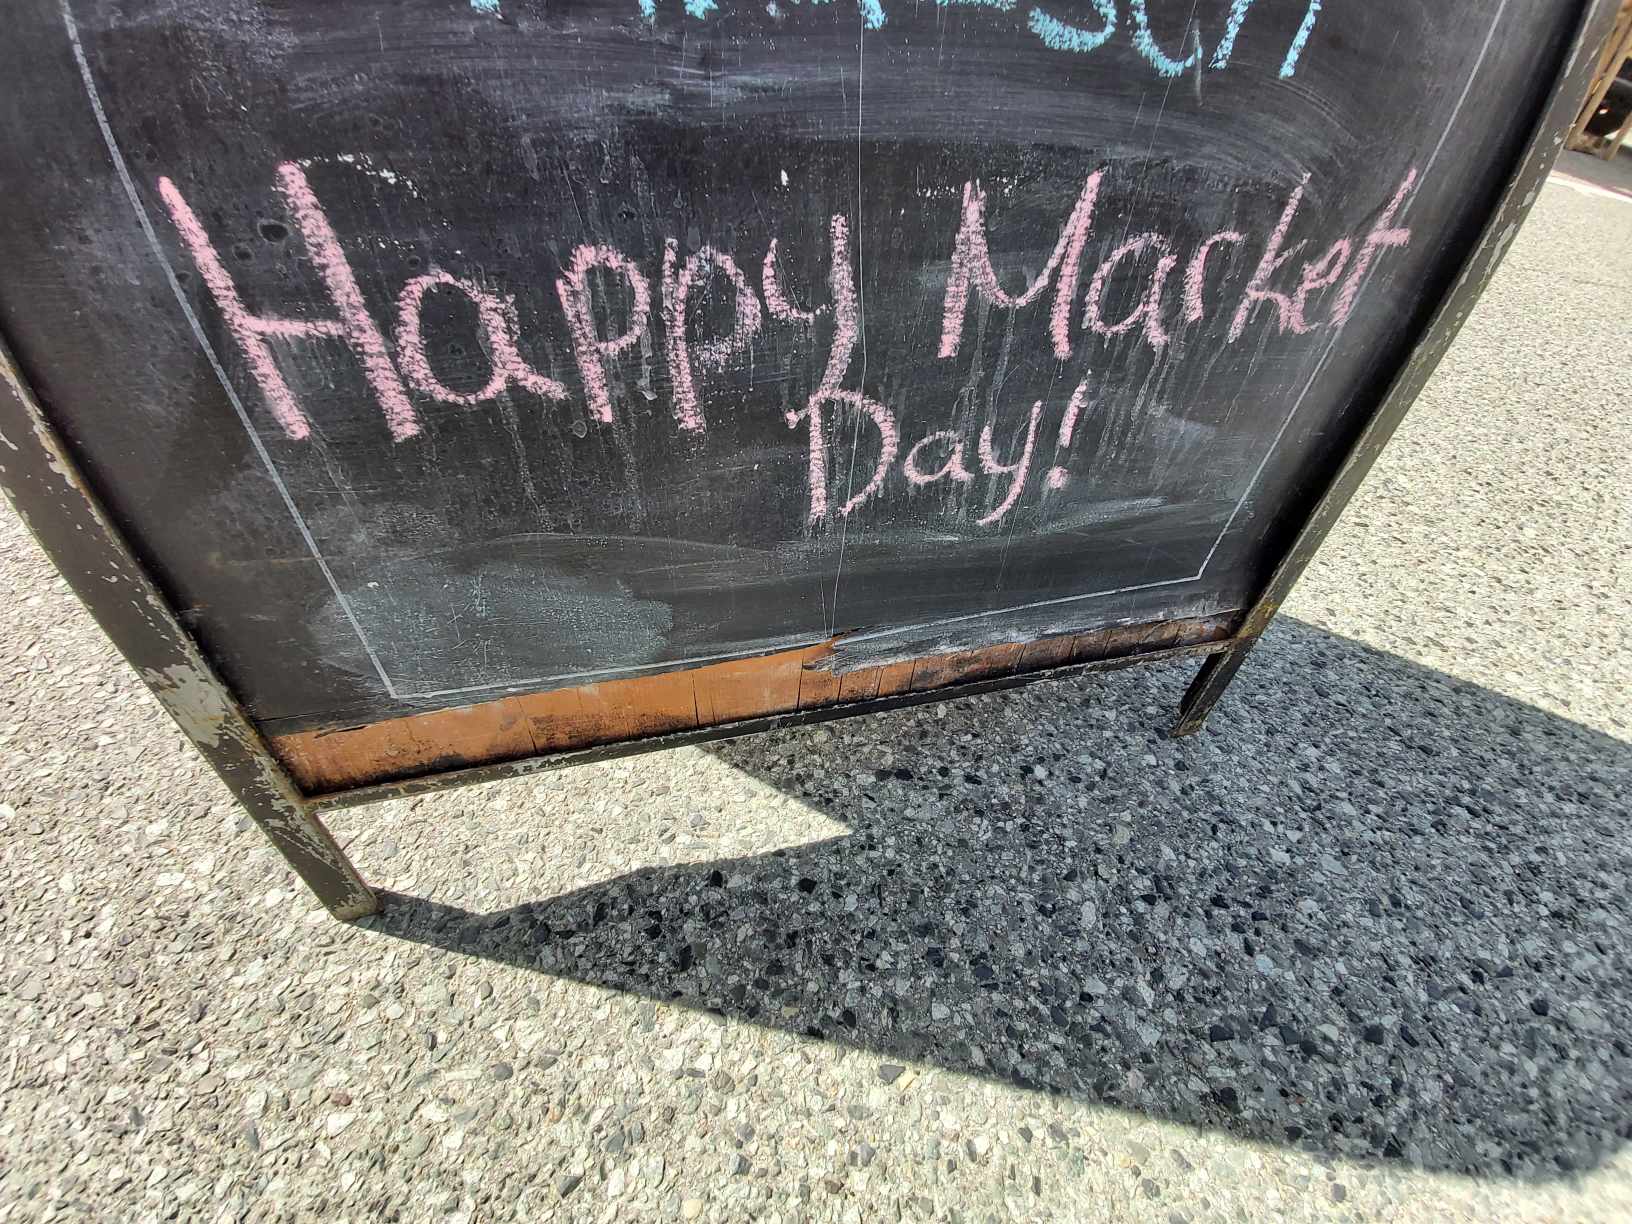 Happy Market
Day!